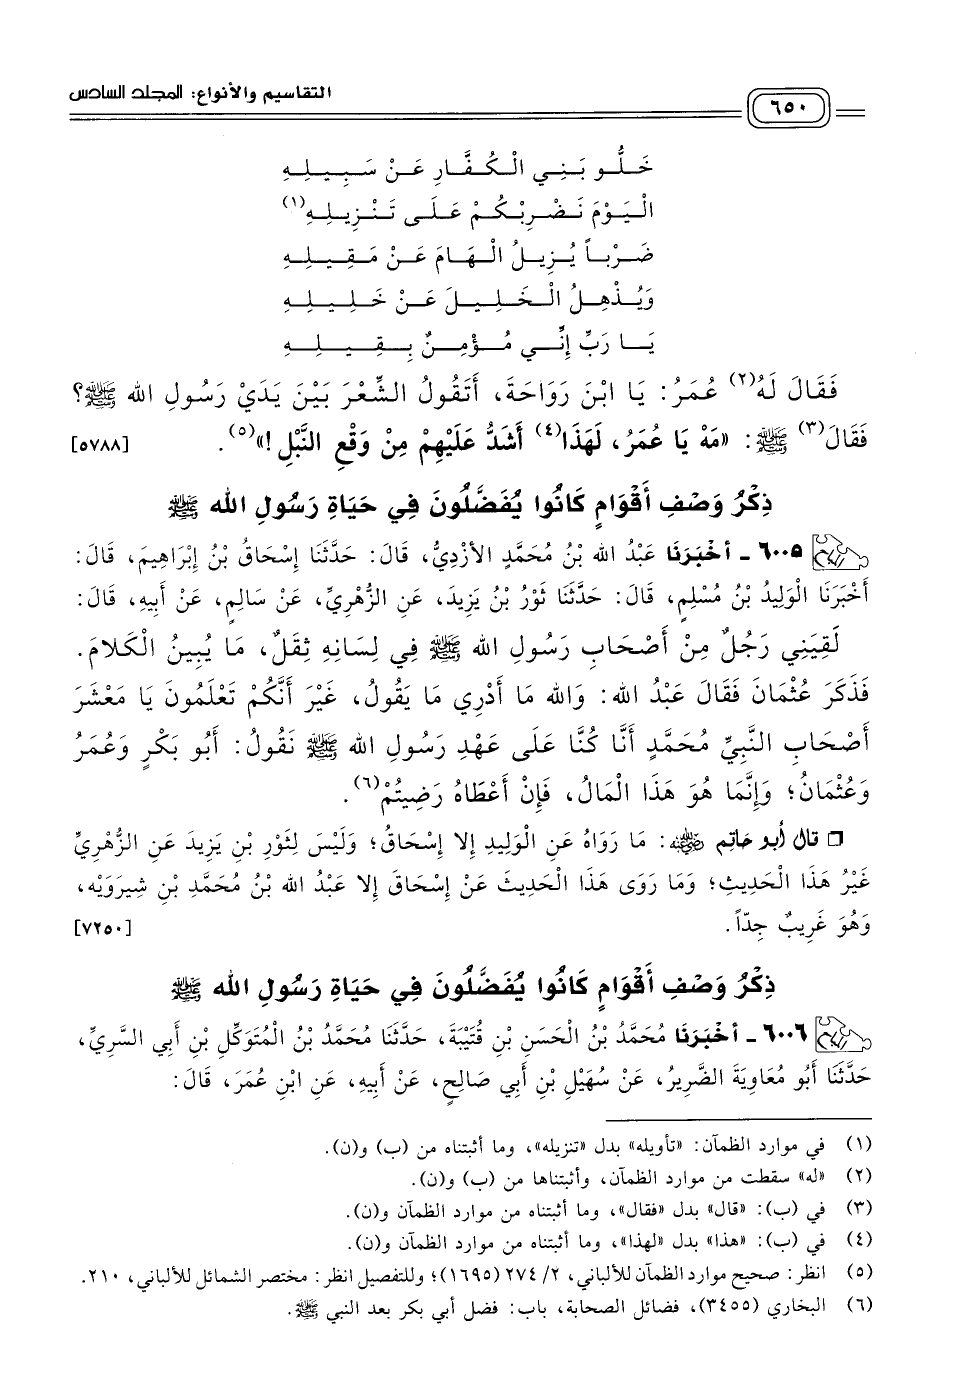 التقاسيم والأنواع: المجلد السادس
٦٥٠
خَلُّو بَنِي الْكُفَّارِ عَنْ سَبِيلِهِ
الْيَوْمَ نَضْرِبْكُمْ عَلَى تَنْزِيلِهِ(١)
ضَرْباً يُزِيلُ الْهَامَ عَنْ مَقِيلِهِ
وَيُذْهِلُ الْخَلِيلَ عَنْ خَلِيلِهِ
يَا رَبِّ إِنِّي مُؤْمِنٌ بِقِيلِهِ
فَقَالَ لَهُ(٢) عُمَرُ: يَا ابْنَ رَوَاحَةَ، أَتَقُولُ الشِّعْرَ بَيْنَ يَدَيْ رَسُولِ الله ﷺ؟
فَقَالَ(٣) ﷺ: «مَهْ يَا عُمَرُ، لَهَذَا(٤) أَشَدُّ عَلَيْهِمْ مِنْ وَقْعِ النَّبْلِ!»(٥). [٥٧٨٨]
ذِكْرُ وَصْفِ أَقْوَامٍ كَانُوا يُفَضَّلُونَ فِي حَيَاةِ رَسُولِ الله ﷺ
٦٠٠٥ - أَخْبَرَنَا عَبْدُ الله بْنُ مُحَمَّدٍ الأَزْدِيُّ، قَالَ: حَدَّثَنَا إِسْحَاقُ بْنُ إِبْرَاهِيمَ، قَالَ:
أَخْبَرَنَا الْوَلِيدُ بْنُ مُسْلِمٍ، قَالَ: حَدَّثَنَا ثَوْرُ بْنُ يَزِيدَ، عَنِ الزُّهْرِيِّ، عَنْ سَالِمٍ، عَنْ أَبِيهِ، قَالَ:
لَقِيَنِي رَجُلٌ مِنْ أَصْحَابِ رَسُولِ الله ﷺ فِي لِسَانِهِ ثِقَلٌ، مَا يُبِينُ الْكَلامَ.
فَذَكَرَ عُثْمَانَ فَقَالَ عَبْدُ الله: وَالله مَا أَدْرِي مَا يَقُولُ، غَيْرَ أَنَّكُمْ تَعْلَمُونَ يَا مَعْشَرَ
أَصْحَابِ النَّبِيِّ مُحَمَّدٍ أَنَّا كُنَّا عَلَى عَهْدِ رَسُولِ الله ﷺ نَقُولُ: أَبُو بَكْرٍ وَعُمَرُ
وَعُثْمَانُ؛ وَإِنَّمَا هُوَ هَذَا الْمَالُ، فَإِنْ أَعْطَاهُ رَضِيتُمْ(٦).
❏ قال أبو حاتم ﵁: مَا رَوَاهُ عَنِ الْوَلِيدِ إِلا إِسْحَاقُ؛ وَلَيْسَ لِثَوْرِ بْنِ يَزِيدَ عَنِ الزُّهْرِيِّ
غَيْرُ هَذَا الْحَدِيثِ؛ وَمَا رَوَى هَذَا الْحَدِيثَ عَنْ إِسْحَاقَ إِلا عَبْدُ الله بْنُ مُحَمَّدِ بْنِ شِيرَوَيْه،
وَهُوَ غَرِيبٌ جِدّاً. [٧٢٥٠]
ذِكْرُ وَصْفِ أَقْوَامٍ كَانُوا يُفَضَّلُونَ فِي حَيَاةِ رَسُولِ الله ﷺ
٦٠٠٦ - أَخْبَرَنَا مُحَمَّدُ بْنُ الْحَسَنِ بْنِ قُتَيْبَةَ، حَدَّثَنَا مُحَمَّدُ بْنُ الْمُتَوَكِّلِ بْنِ أَبِي السَّرِيِّ،
حَدَّثَنَا أَبُو مُعَاوِيَةَ الضَّرِيرُ، عَنْ سُهَيْلِ بْنِ أَبِي صَالِحٍ، عَنْ أَبِيهِ، عَنِ ابْنِ عُمَرَ، قَالَ:
(١) في موارد الظمآن: «تأويله» بدل «تنزيله»، وما أثبتناه من (ب) و(ن).
(٢) «له» سقطت من موارد الظمآن، وأثبتناها من (ب) و(ن).
(٣) في (ب): «قال» بدل «فقال»، وما أثبتناه من موارد الظمآن و(ن).
(٤) في (ب): «هذا» بدل «لهذا»، وما أثبتناه من موارد الظمآن و(ن).
(٥) انظر: صحيح موارد الظمآن للألباني، ٢/ ٢٧٤ (١٦٩٥)؛ وللتفصيل انظر: مختصر الشمائل للألباني، ٢١٠.
(٦) البخاري (٣٤٥٥)، فضائل الصحابة، باب: فضل أبي بكر بعد النبي ﷺ.